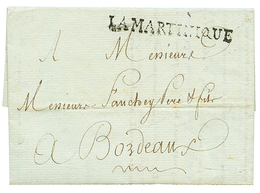 LA MARTINIQUE
A Messieurs
Messieurs Fauchey Pere & fils
a Bordeaux